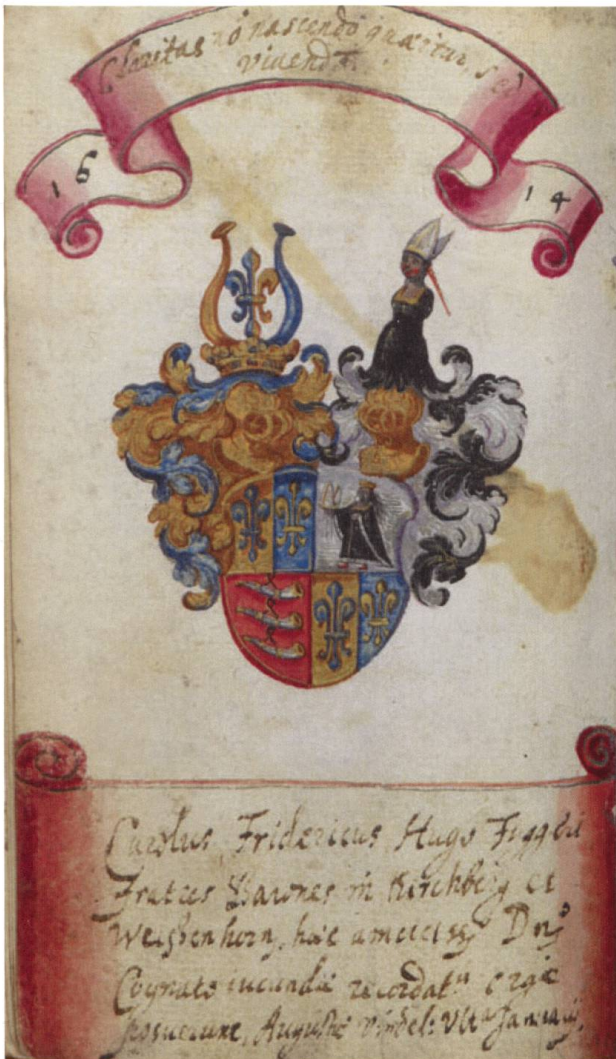 Claritas nō nascendo quæritur, sed
vivendo.
16
14
Carolus, Fridericus, Hugo Fuggeri
Fratres Barones in Kirchberg et
Weissenhorn, hæc amiciss Dnō
Cognato iucundæ recordatn ergæ
posuerunt, Augustæ Vindel: Vlta Januarij